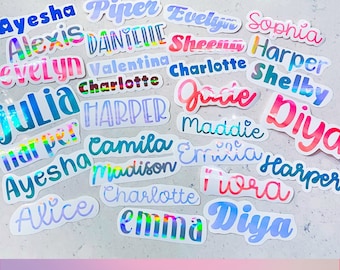 Ayesha
Piper
Evelyn
Sophia
Alexis
DANIELLE
Sheenu
Harper
evelyn
Valentina
Charlotte
Shelby
Julia
Charlotte
Josie
Diya
HARPER
Maddie
harper
Camila
Emma
Harper
Ayesha
Madison
Nora
Charlotte
Alice
emma
Diya